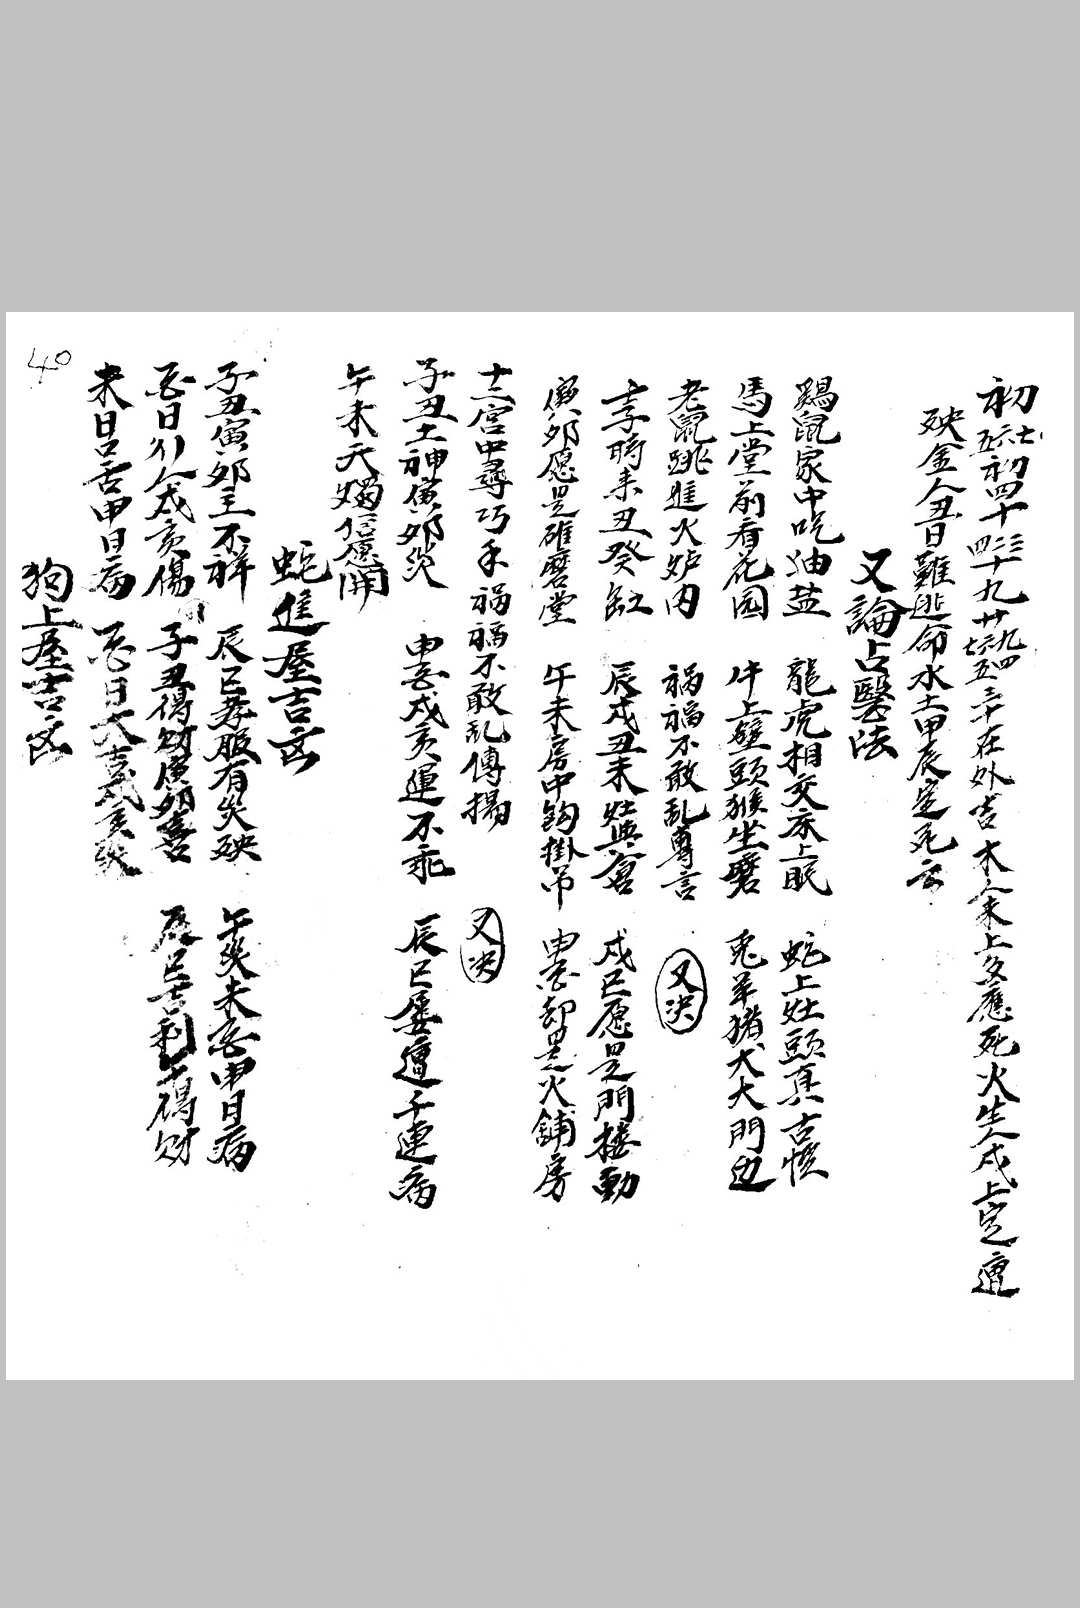 初七五六初四十三三四十九廿九四六七五三十在外吉木命未上多應死火生人戌上定遭
殃金人丑日難逃命水土甲辰定死亡
又論占醫法
鷄鼠家中吃油盐 龍虎相交床上眠 蛇上灶頭真古怪
馬上堂前看花园 牛上壁頭猴坐磨 兎羊猪犬大門边
老鼠跳進火炉内 禍福不敢乱專言 又决
子時未丑癸缸 辰戌丑未灶共倉 戌巳愿是門楼動
寅卯愿是碓磨堂 午未房中鈎掛吊 申酉却是火鋪房
十二宮中尋巧手 禍福不敢乱傳揚 又决
子丑土神寅卯災 申酉戌亥運不乖 辰巳屡遭千連病
午未天燭信愿開
蛇進屋吉凶
子丑寅卯主不祥 辰巳孝服有災殃 午災未酉申日病
酉日引人戌亥傷 子丑得财寅卯喜 辰巳吉利午得财
未日口舌申日病 酉日大吉戌亥災
狗上屋吉凶
40